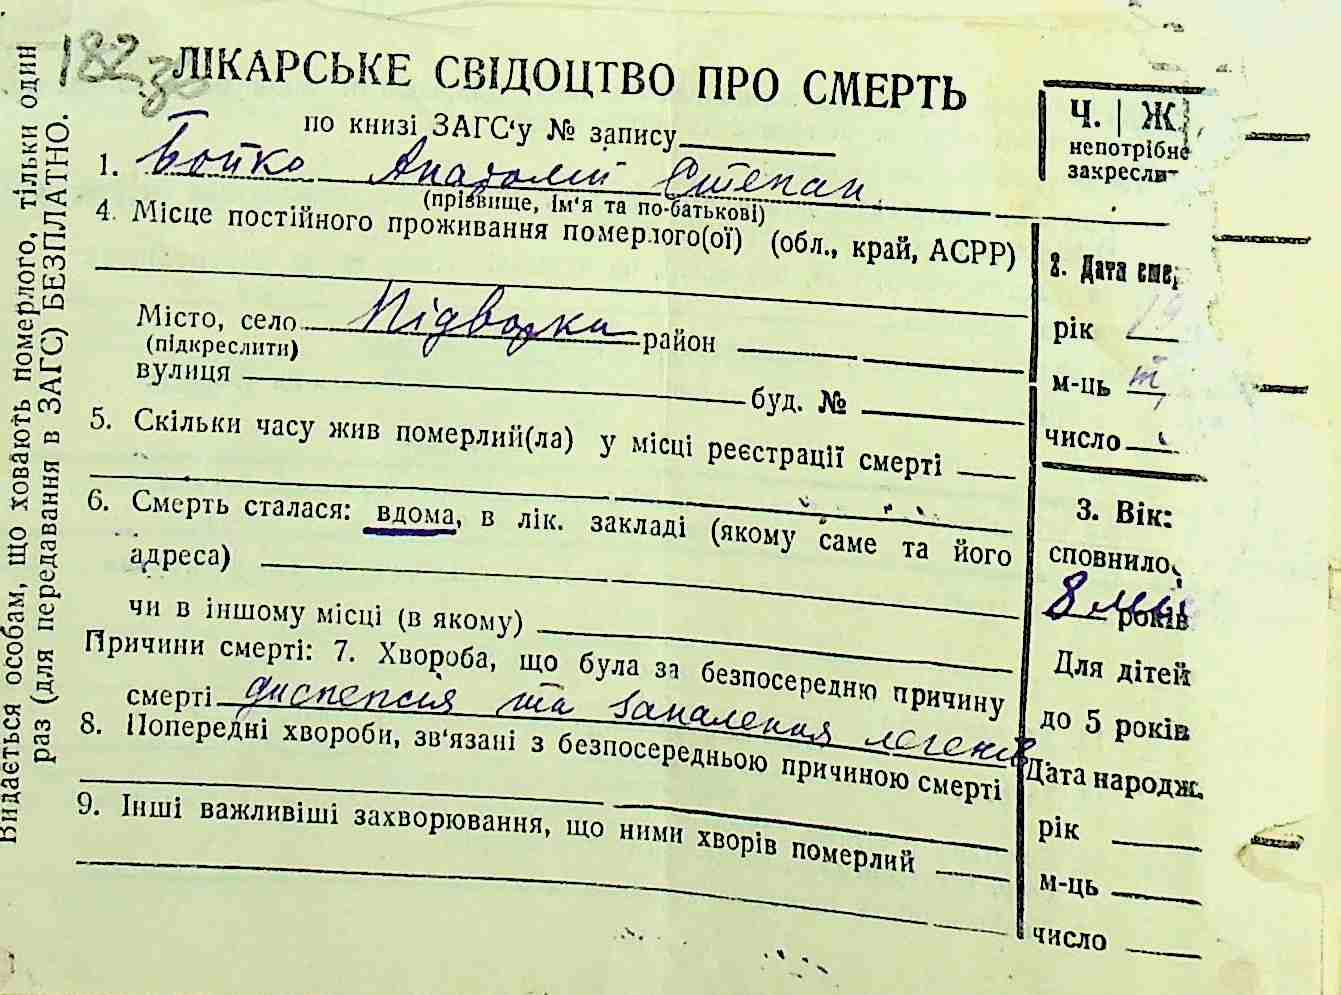 182
ЛІКАРСЬКЕ СВІДОЦТВО ПРО СМЕРТЬ
по книзі ЗАГС‘у № запису
1. Бойко Анатолій Степан
(прізвище, ім‘я та по-батькові)
4. Місце постійного проживання померлого(ої) (обл., край, АСРР)
Місто, село Підворки район
(підкреслити)
вулиця буд. №
5. Скільки часу жив померлий(ла) у місці реєстрації смерті
6. Смерть сталася: вдома, в лік. закладі (якому саме та його
адреса)
чи в іншому місці (в якому)
Причини смерті: 7. Хвороба, що була за безпосередню причину
смерті диспепсія та запалення легенів
8. Попередні хвороби, зв‘язані з безпосередньою причиною смерті
9. Інші важливіші захворювання, що ними хворів померлий
Ч. | Ж.
непотрібне
закреслит
2. Дата смер
рік 19
м-ць
число
3. Вік:
сповнилос
8 міс
років
Для дітей
до 5 років
Дата народж.
рік
м-ць
число
Видається особам, що ховають померлого, тільки один
раз (для передавання в ЗАГС) БЕЗПЛАТНО.